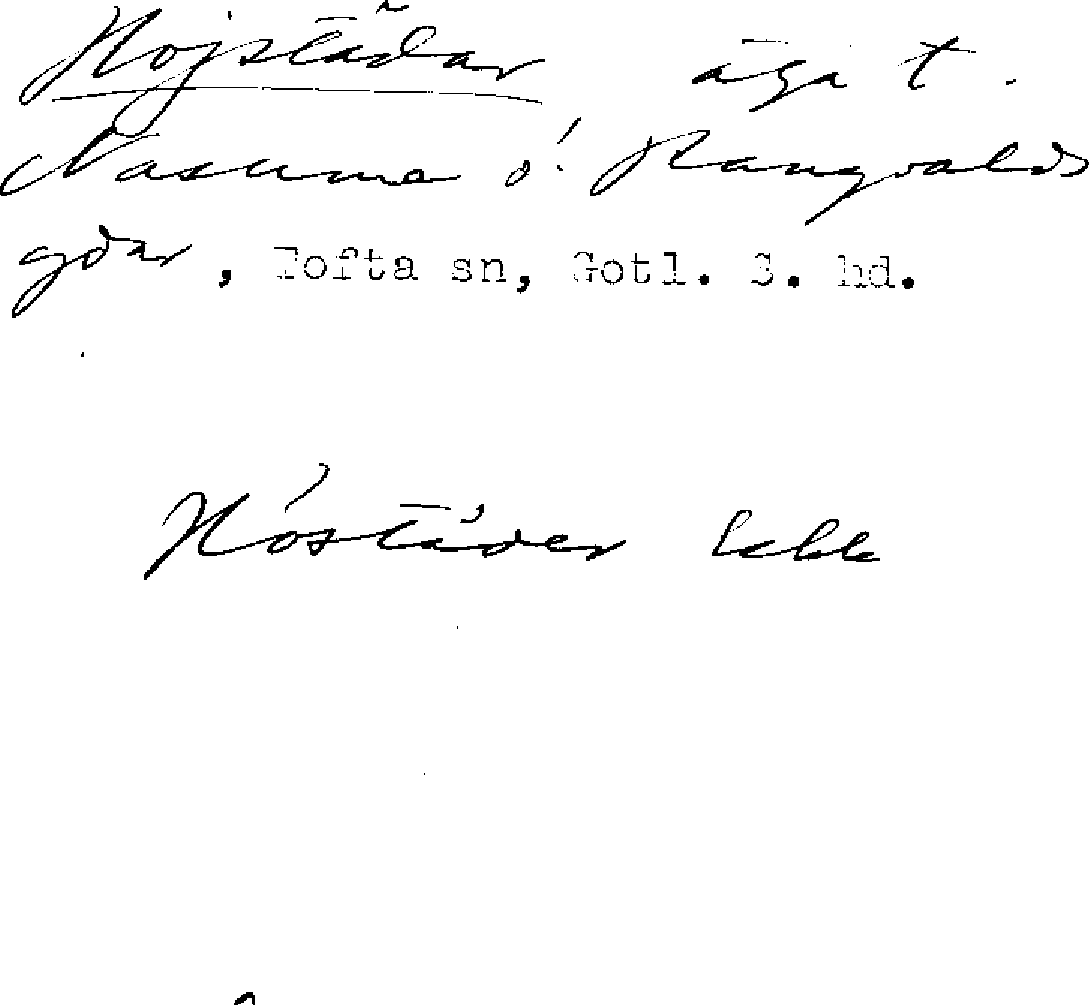 Höjstädar äga t.
Nasume o. Rangvalds
gdar, Tofta sn, Gotl. S. hd.
Höstäder Ekk